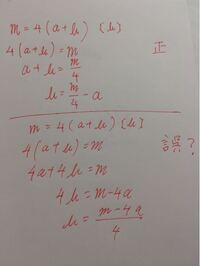 m = 4(a+b) [b]
4(a+b) = m
a+b = m/4
b = m/4 - a
正
m = 4(a+b) [b]
4(a+b) = m
4a+4b = m
4b = m-4a
b = m-4a/4
誤?